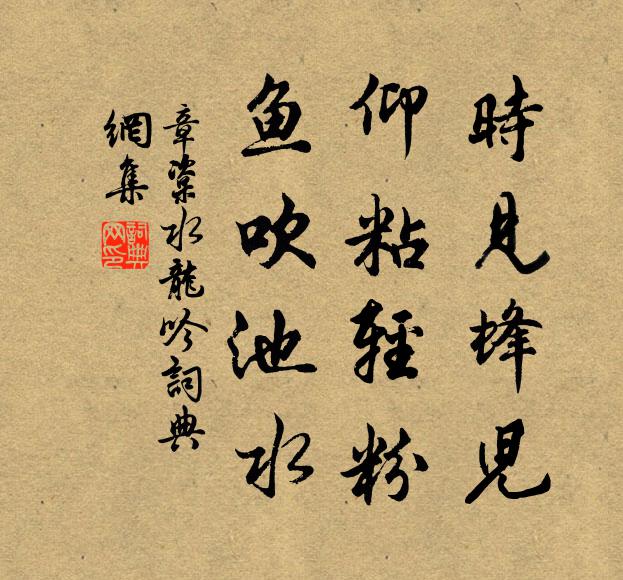 時見蜂児
仰粘輕粉
鱼吹池水
章楶水龍吟詞典
網集
詞典
网印